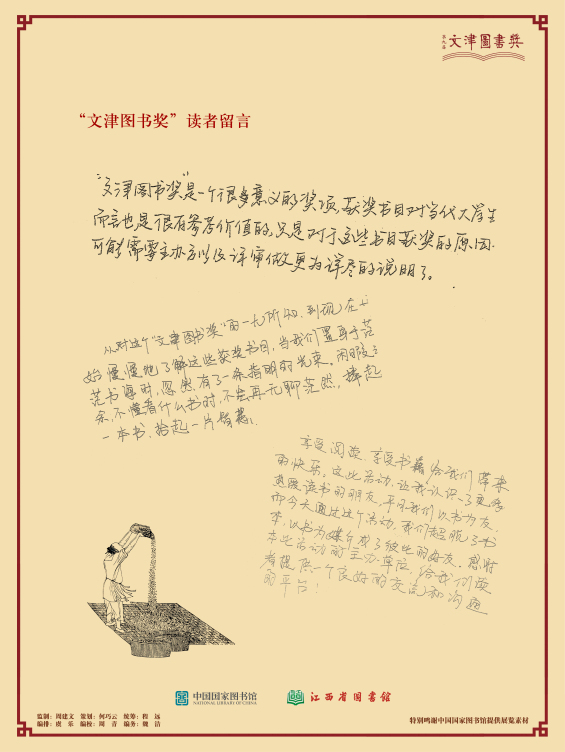 第九届
文津图书奖
“文津图书奖”读者留言
“文津图书奖”是一个很多意义的奖项,获奖书目对当代大学生
而言也是很有参考价值的,只是对于这些书目获奖的原因.
可能需要主办方以及评审做更为详尽的说明了。
从对这个“文津图书奖”的一无所知,到现在开
始慢慢地了解这些获奖书目,当我们置身于茫
茫书海时,忽然有了一条指明的光束。闲暇之
余,不懂看什么书时,不会再无聊茫然,捧起
一本书,拾起一片智慧!
享受阅读,享受书籍给我们带来
的快乐。这此活动,让我认识了更多
热爱读书的朋友,平日我们以书为友,
而今天通过这个活动,我们超脱了书
本,以书为媒介成了彼此的好友。感谢
本此活动的主办单位,给我们读
者提供一个良好的交流和沟通
的平台!
中国国家图书馆
NATIONAL LIBRARY OF CHINA
江西省图书馆
监制:周建文 策划:何巧云 统筹:程 远
编排:虞 乐 编校:周 青 编务:魏 洁
特别鸣谢中国国家图书馆提供展览素材